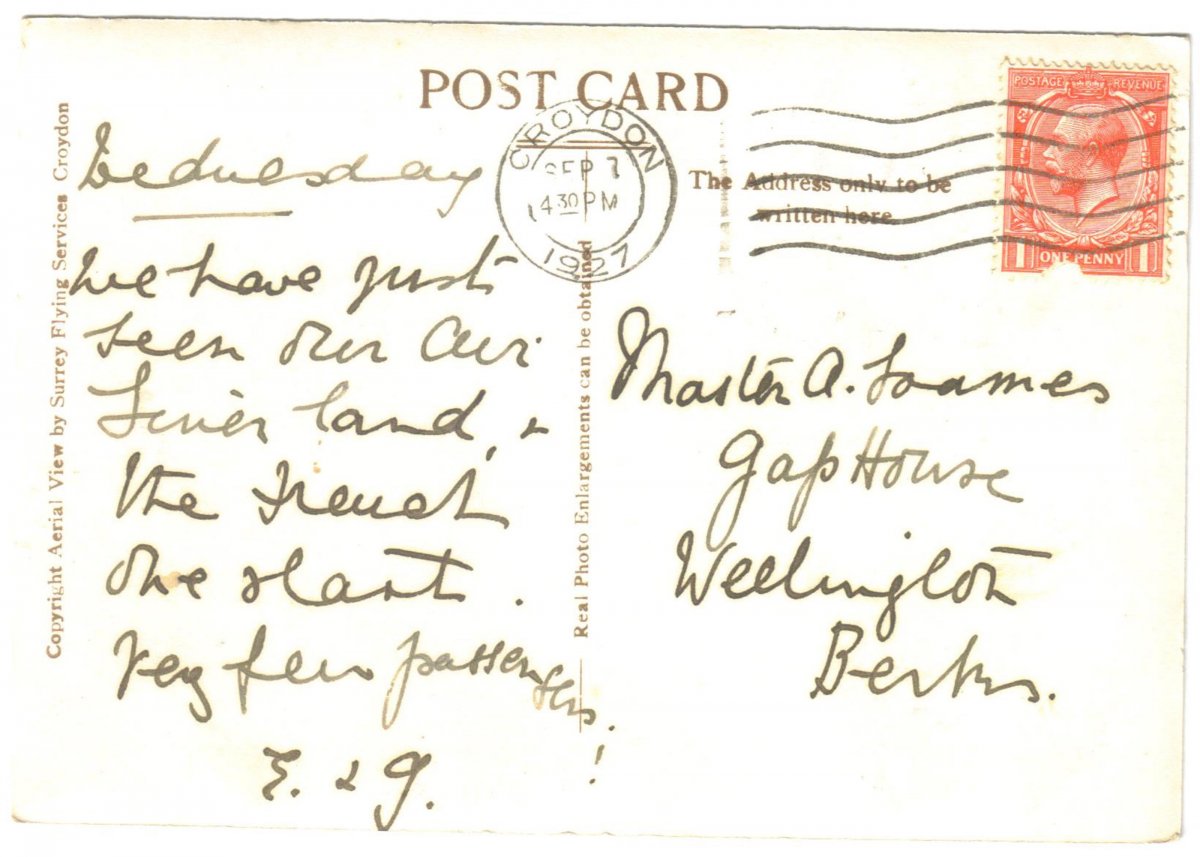 POST CARD
Copyright Aerial View by Surrey Flying Services Croydon
Real Photo Enlargements can be obtained
The Address only to be
written here.
CROYDON
SEP 7
4 30 PM
1927
POSTAGE REVENUE
1 ONE PENNY 1
Wednesday
We have just
seen our Air
Liner land, &
the French
one start.
Very few passen
gers.
!
E. & G.
Master A. Soames
Gap House
Wellington
Berks.